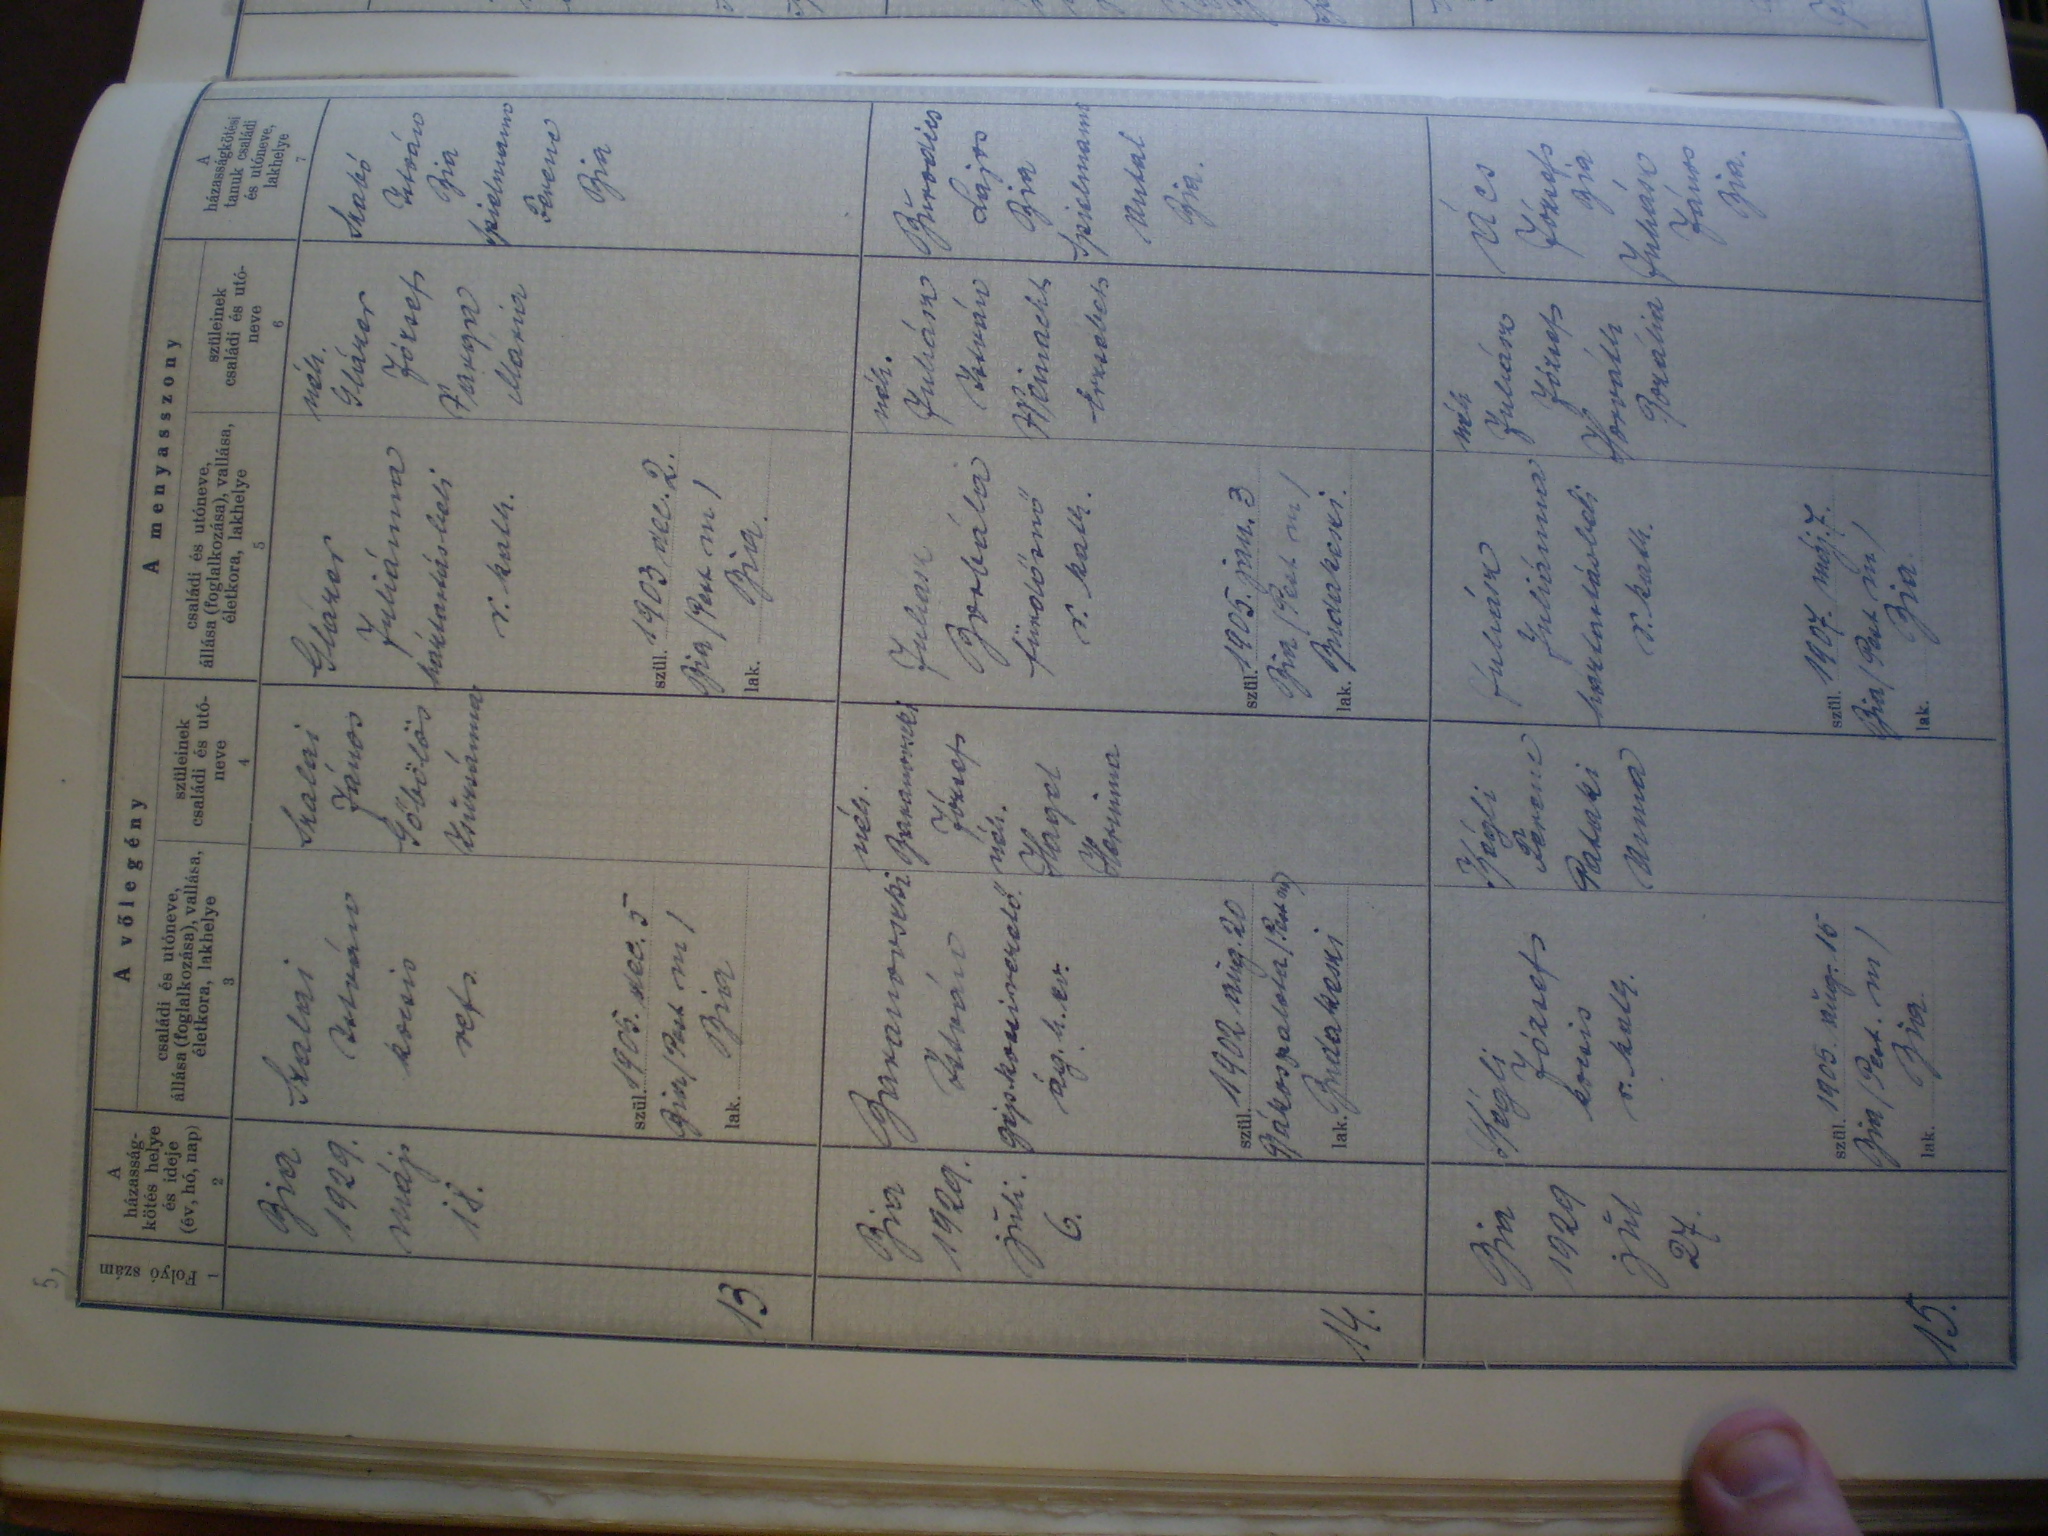 5,
A vőlegény
A menyasszony
Folyó-
szám
1
A
házasság-
kötés helye
és ideje
(év, hó, nap)
2
családi és utóneve,
állása (foglalkozása), vallása,
életkora, lakhelye
3
szüleinek
családi és utó-
neve
4
családi és utóneve,
állása (foglalkozása), vallása,
életkora, lakhelye
5
szüleinek
családi és utó-
neve
6
A
házasságkötési
tanuk családi
és utóneve,
lakhelye
7
13
Bia
1929.
máj
18.
Szalai
István
kocsis
ref.
szül. 1905. dec. 5
Bia (Pest m)
lak. Bia
Szalai
János
Göbölös
Zsuzsánna
Glázer
Juliánna
háztartásbeli
r. kath.
szül. 1903 dec. 2.
Bia (Pest m)
lak. Bia.
néh.
Glázer
József
Varga
Mária
Szabó
István
Bia
Spielmann
Ferenc
Bia
14.
Bia
1929.
júli.
6.
Baranovszki
István
ág. h. ev.
szül. 1902 aug. 20
Rákospalota (Pest m)
lak. Budakeszi
néh.
Baranovszki
József
néh.
Hagel
Hermina
Juhász
Borbála
fürdősnő
r. kath.
szül. 1905. jan. 3
Bia (Pest m)
lak. Budakeszi.
néh.
Juhász
István
Weinacht
Erzsébet
Lajos
Bia
Spielmann
Antal
Bia.
15.
Bia
1929
júl
27.
József
kocsis
r. kath.
szül. 1905. aug. 15
Bia (Pest. m)
lak. Bia.
Ferenc
Pataki
Anna
Juhász
Juliánna
háztartásbeli
r. kath.
szül. 1907. máj. 7.
Bia (Pest m)
lak. Bia.
néh
Juhász
József
Horváth
Rozália
Ács
József
Bia
Juhász
János
Bia.